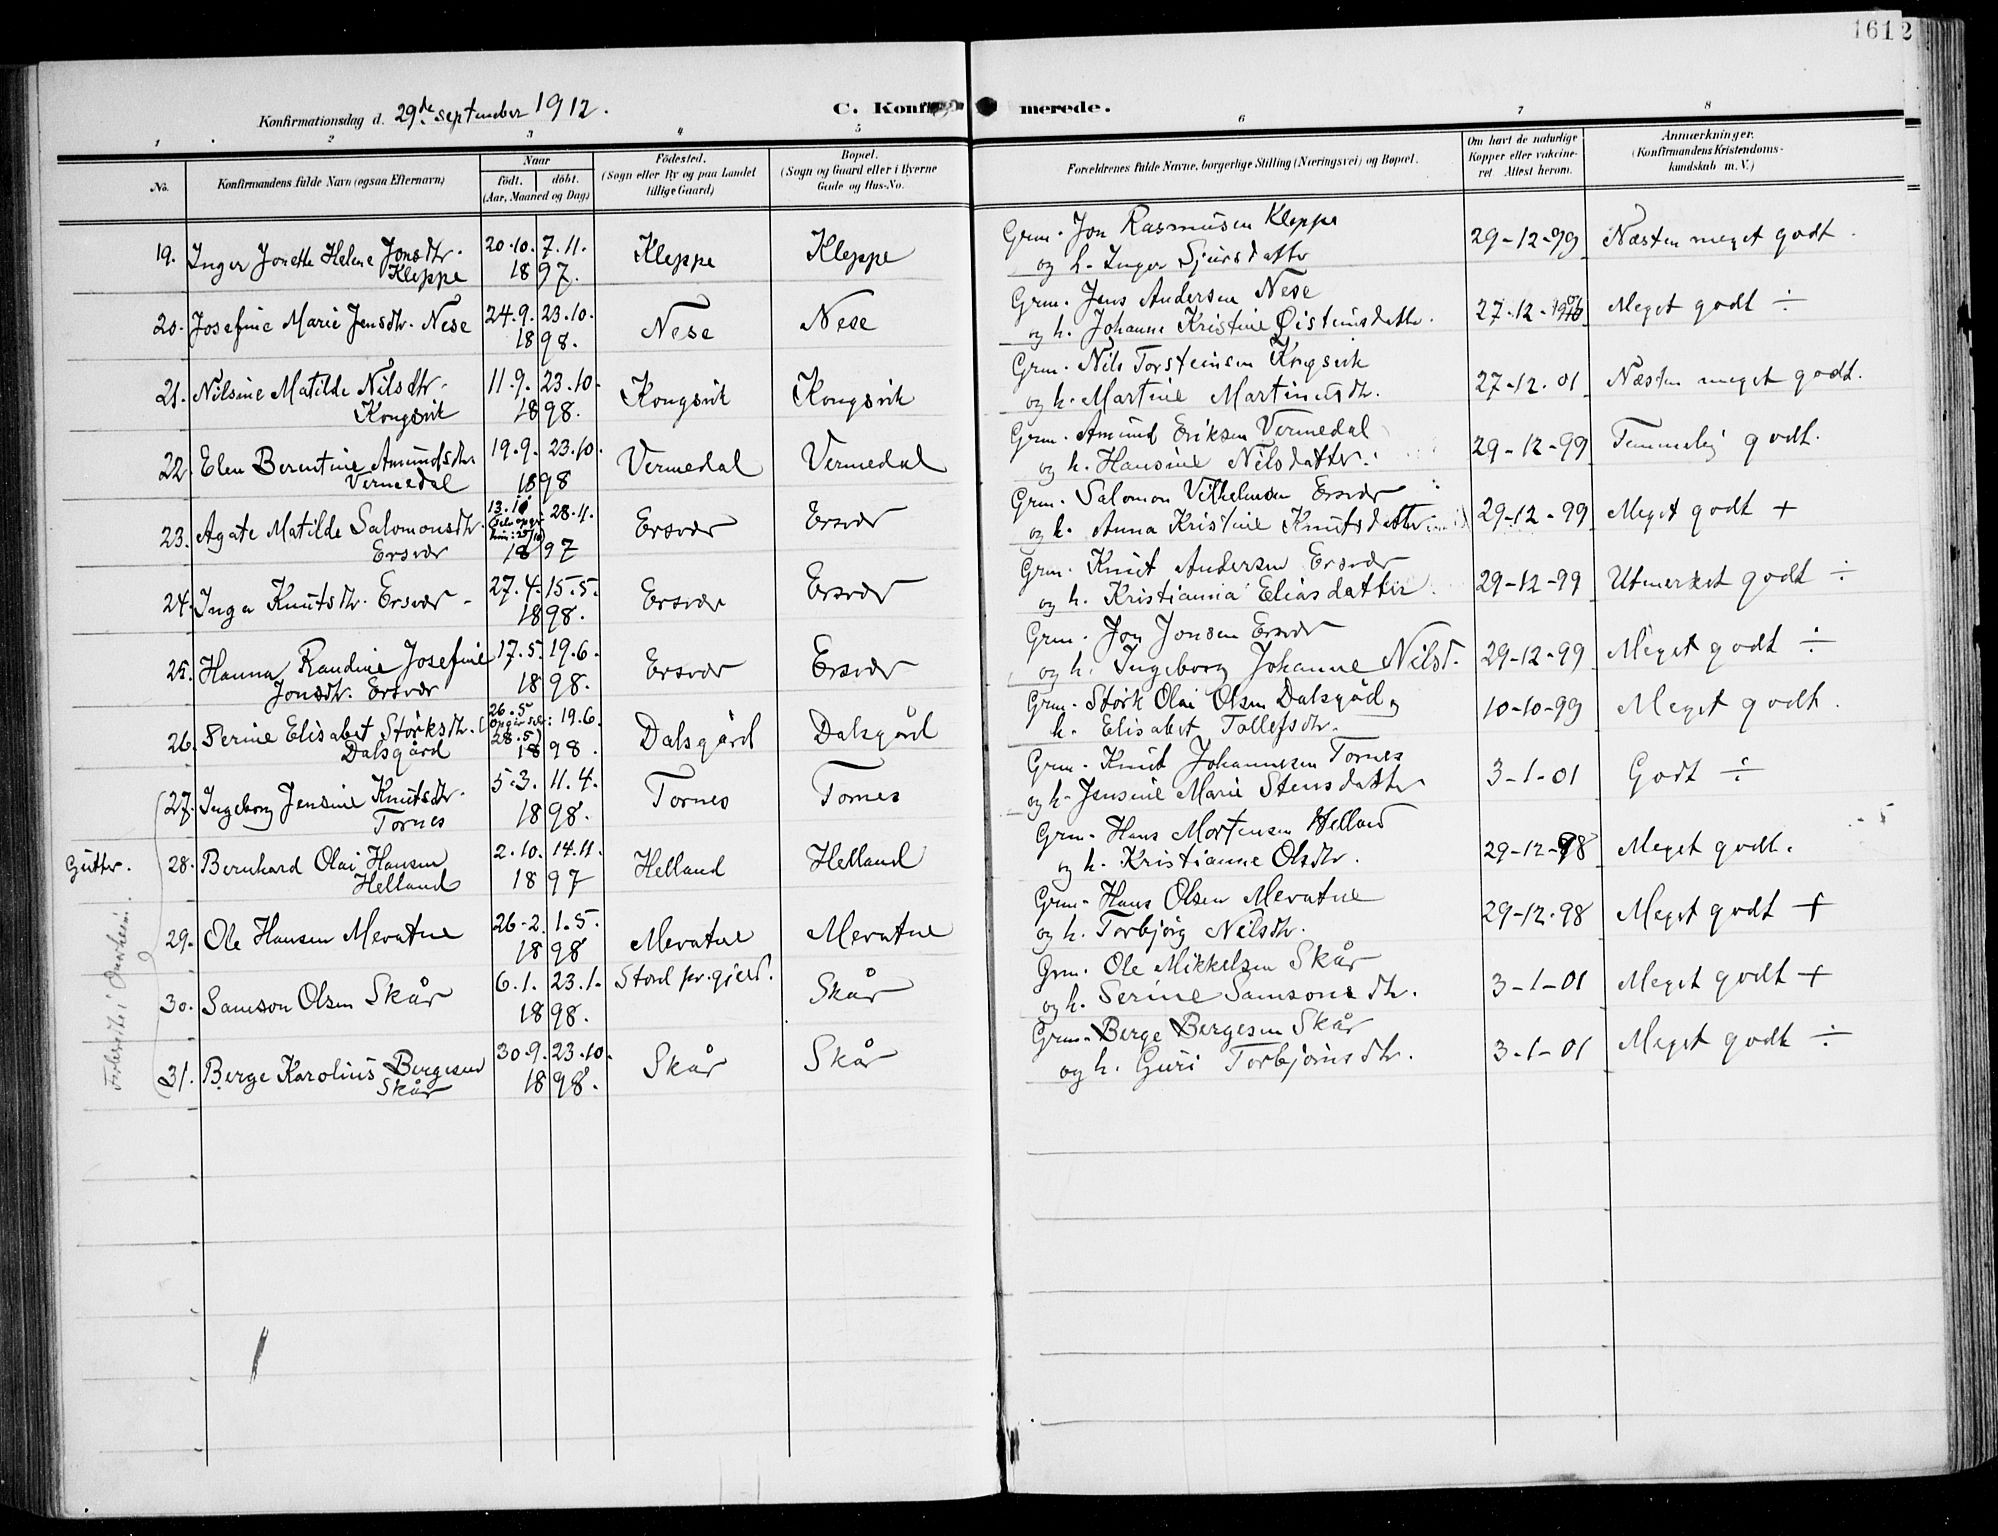 1612
Konfirmationsdag d. 29de september 1912.
C. Konfirmerede.
1 2 3 4 5 6 7 8
No.
Konfirmandens fulde Navn (ogsaa Efternavn)
Naar
født. døbt.
(Aar, Maaned og Dag)
Fødested.
(Sogn eller By og paa Landet
tillige Gaard)
Bopæl.
(Sogn og Gaard eller i Byerne
Gade og Hus-No.
Forældrenes fulde Navne, borgerlige Stilling (Næringsvei) og Bopæl.
Om havt de naturlige
Kopper eller vakcine-
ret. Attest herom.
Anmærkninger.
(Konfirmandens Kristendoms-
kundskab m. V.)
19. Inger Jonette Helene Jonsdtr. 20.10. 7.11. Kleppe Kleppe Grm. Jon Rasmusen Kleppe 29-12-99 Næsten meget godt.
Kleppe 1897. og h. Inger Sjursdatter
20. Josefine Marie Jensdtr. Nese 24.9. 23.10. Nese Nese Grm. Jens Andersen Nese 27-12- Meget godt ÷
1898. og h. Johanne Kristine Øisteinsdatter.
21. Nilsine Matilde Nilsdtr. 11.9. 23.10. Kongsvik Kongsvik Grm. Nils Torsteinsen Kongsvik 27-12.01 Næsten meget godt.
Kongsvik 1898. og h. Martine Martinusdtr.
22. Elen Berntine Amundsdtr. 19.9. 23.10. Vermedal Vermedal Grm. Amund Eriksen Vermedal 29-12-99 Temmelig godt.
Vermedal 1898 og h. Hansine Nilsdatter.
23. Agate Matilde Salomonsdtr. 13.10 28.11. Ersvær Ersvær Grm. Salomon Vilhelmsen Ersvær 29-12-99 Meget godt +
Ersvær 1897 og h. Anna Kristine Knutsdatter
24. Inga Knutsdtr. Ersvær - 27.4. 15.5. Ersvær Ersvær Grm. Knut Andersen Ersvær 29-12-99 Utmerket godt ÷
1898. og h. Kristianna Eliasdatter.
25. Hanna Randine Josefine 17.5. 19.6. Ersvær Ersvær Grm. Jon Jonsen Ersvær 29-12-99 Meget godt ÷
Jonsdtr. Ersvær 1898. og h. Ingeborg Johanne Nilsd.
26. Serine Elisabet Størksdtr. (26.5 opgir selv: 28.5) 19.6. Dalsgård Dalsgård Grm. Størk Olai Olsen Dalsgård og 10-10-99 Meget godt.
Dalsgård 1898. h. Elisabet Tollefsdtr.
27. Ingeborg Jensine Knutsdtr. 5.3. 11.4. Tornes Tornes Grm. Knut Johannesen Tornes 3-1-01 Godt ÷
Tornes 1898. og h. Jensine Marie Stensdatter
Gutter. 28. Bernhard Olai Hansen 2.10. 14.11. Helland Helland Grm. Hans Mortensen Helland 29-12-98 Meget godt.
Helland 1897 og h. Kristianne Olsdtr.
29. Ole Hansen Mevatne 26-2. 1.5. Mevatne Mevatne Grm. Hans Olsen Mevatne 29-12-98 Meget godt +
1898 og h. Torbjørg Nilsdtr.
30. Samson Olsen Skår 6.1. 23.1. Stord pr.gjeld. Skår Grm. Ole Mikkelsen Skår 3-1-01 Meget godt +
1898. og h. Serine Samsonsdtr.
31. Berge Karolius Bergesen 30.9. 23.10. Skår Skår Grm. Berge Bergesen Skår 3-1-01 Meget godt ÷
Skår 1898. og h. Guri Torbjørnsdtr.